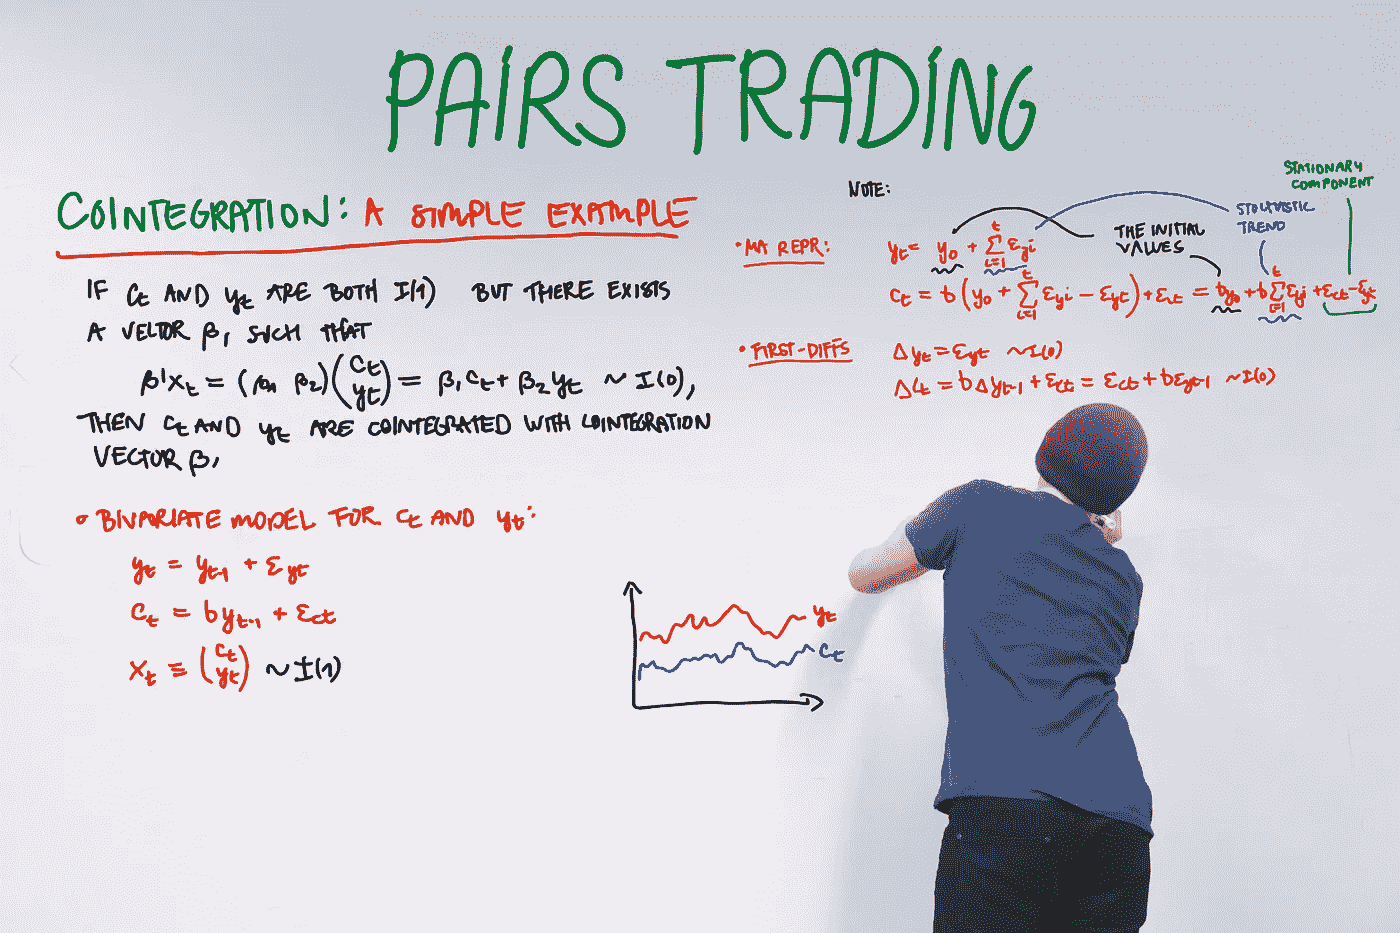 PAIRS TRADING
COINTEGRATION: A SIMPLE EXAMPLE
IF Ct AND yt ARE BOTH I(1) BUT THERE EXISTS
A VECTOR β, SUCH THAT
β'xt = (β1 β2)(Ct yt) = β1Ct + β2yt ~ I(0),
THEN Ct AND yt ARE COINTEGRATED WITH COINTEGRATION
VECTOR β,
BIVARIATE MODEL FOR Ct AND yt:
yt = yt-1 + εyt
Ct = byt-1 + εct
Xt ≡ (Ct yt) ~ I(1)
yt
Ct
NOTE:
STATIONARY
COMPONENT
STOCHASTIC
TREND
THE INITIAL
VALUES
• MA REPR: yt = y0 + Σ(i=1, t) εyi
Ct = b(y0 + Σ(i=1, t) εyi − εyt) + εct = by0 + bΣ(i=1, t) εyi + εct − εyt
• FIRST-DIFFS Δyt = εyt ~ I(0)
ΔCt = bΔyt-1 + εct = εct + bεyt-1 ~ I(0)